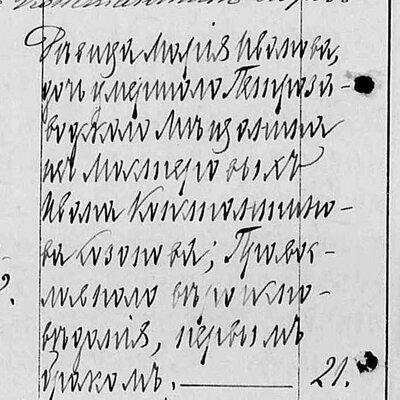 Дѣвица Марія Иванова,
дочь умершаго Петроза-
водскаго мѣщанина
изъ мастеровыхъ
Ивана Константино-
ва Козонова; Православ-
славнаго вѣроиспо-
вѣданія, первымъ
бракомъ. 21.